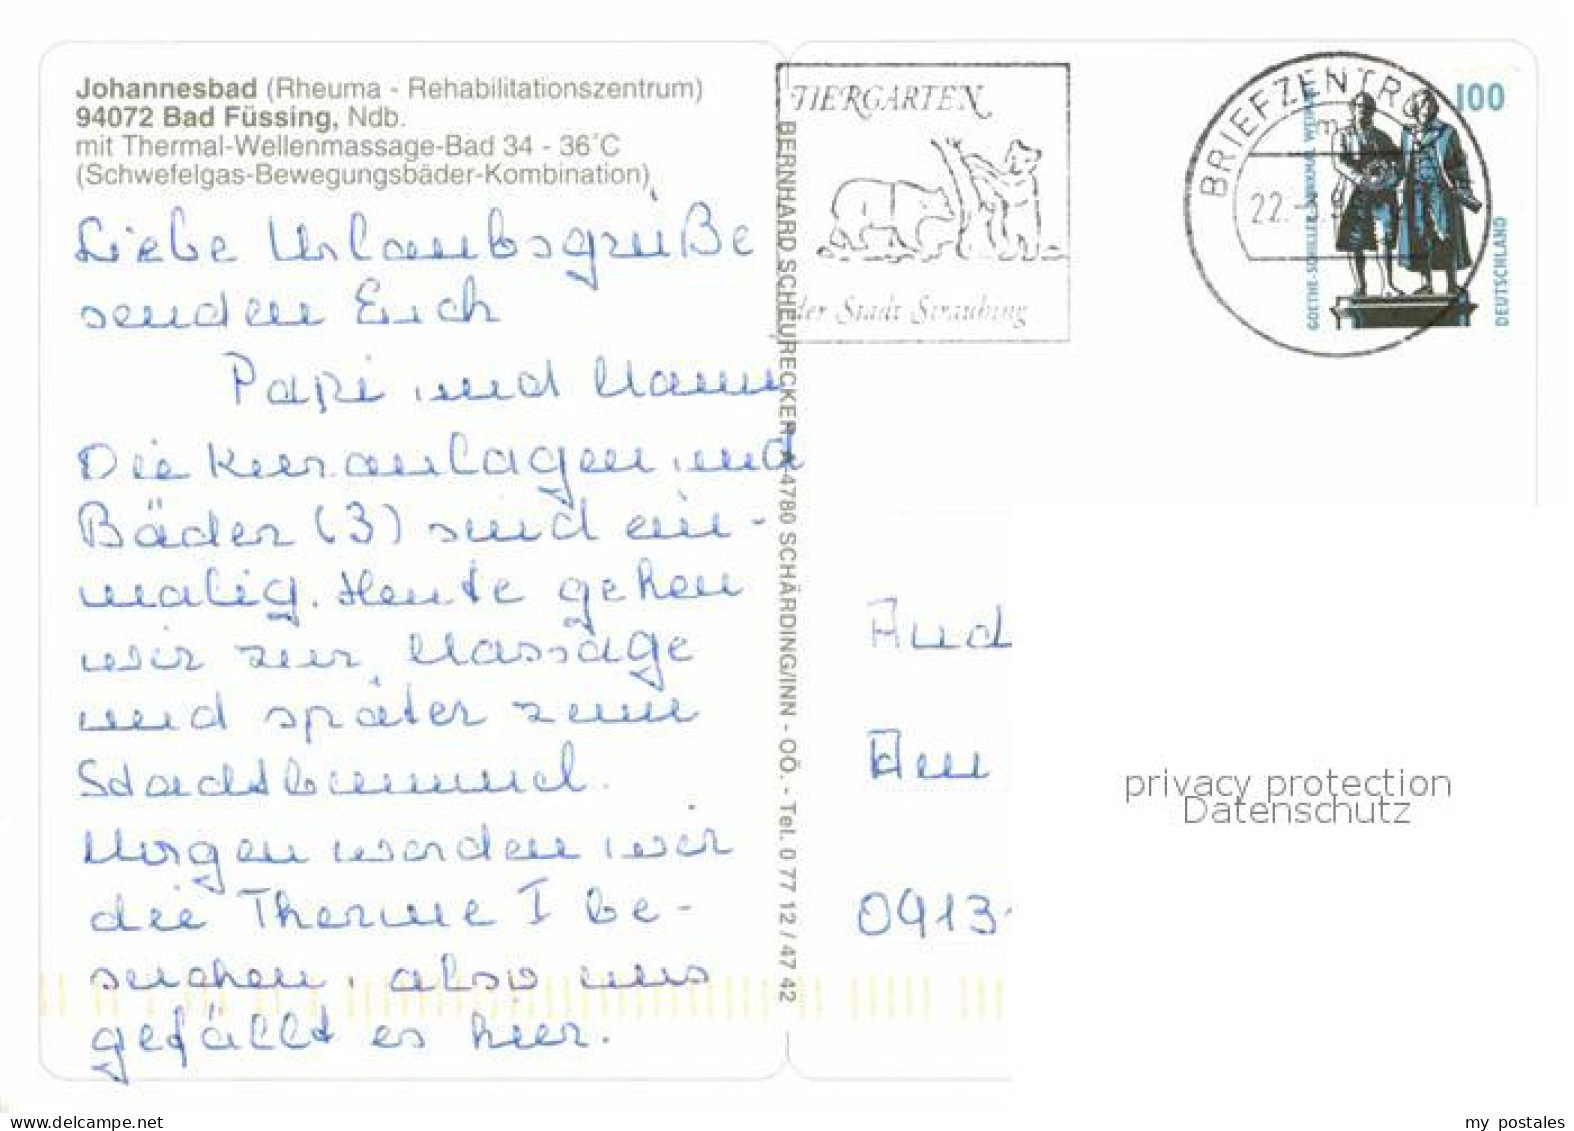 Johannesbad (Rheuma - Rehabilitationszentrum)
94072 Bad Füssing, Ndb.
mit Thermal-Wellenmassage-Bad 34 - 36°C
(Schwefelgas-Bewegungsbäder-Kombination)
Liebe Urlaubsgrüße
senden Euch
Papi und Mami
Die Kuranlagen und
Bäder (3) sind ein-
malig. Heute gehen
wir zur Massage
und später zum
Stadtbummel.
Morgen werden wir
die Therme I be-
suchen, also uns
gefällt es hier.
BERNHARD SCHEURECKER, A-4780 SCHÄRDING/INN - OÖ. - Tel. 0 77 12 / 47 42
TIERGARTEN
der Stadt Straubing
BRIEFZENTRUM
22.
100
GOETHE-SCHILLER-DENKMAL WEIMAR
DEUTSCHLAND
And
Am
0913
privacy protection
Datenschutz
www.delcampe.net
my_postales